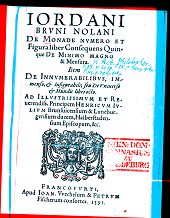 IORDANI
BRVNI NOLANI
DE MONADE NVMERO ET
Figura liber Consequens Quin-
que DE MINIMO MAGNO
& Mensura.
Item
DE INNVMERABILIBVS, IM-
menso, & infigurabili; seu De Vniuerso
& Mundis libri octo.
AD ILLVSTRISSIMVM ET RE-
uerendiss. Principem HENRICVM IV-
LIVM Brunsuicensium & Lunebur-
gensium ducem, Halberstaden-
sium Episcopum, &c.
FRANCOFVRTI,
Apud IOAN. Wechelum & PETRVM
Fischerum consortes. 1591.